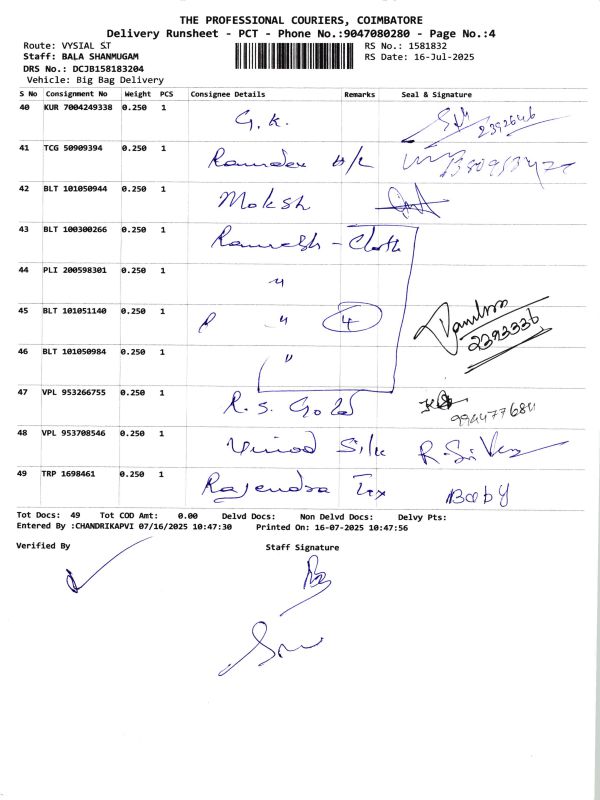 THE PROFESSIONAL COURIERS, COIMBATORE
Delivery Runsheet - PCT - Phone No.:9047080280 - Page No.:4
Route: VYSIAL ST
RS No.: 1581832
Staff: BALA SHANMUGAM
RS Date: 16-Jul-2025
DRS No.: DCJB158183204
Vehicle: Big Bag Delivery
S No Consignment No Weight PCS Consignee Details Remarks Seal & Signature
40 KUR 7004249338 0.250 1 G.K. 2392646
41 TCG 50909394 0.250 1
42 BLT 101050944 0.250 1 Moksh
43 BLT 100300266 0.250 1 Ramesh - Cloth
44 PLI 200598301 0.250 1 "
45 BLT 101051140 0.250 1 " 4 2393336
46 BLT 101050984 0.250 1 "
47 VPL 953266755 0.250 1 R.S. Gold
48 VPL 953708546 0.250 1 Vinod Silk
49 TRP 1698461 0.250 1 Rajendra Tex Baby
Tot Docs: 49 Tot COD Amt: 0.00 Delvd Docs: Non Delvd Docs: Delvy Pts:
Entered By :CHANDRIKAPVI 07/16/2025 10:47:30 Printed On: 16-07-2025 10:47:56
Verified By Staff Signature